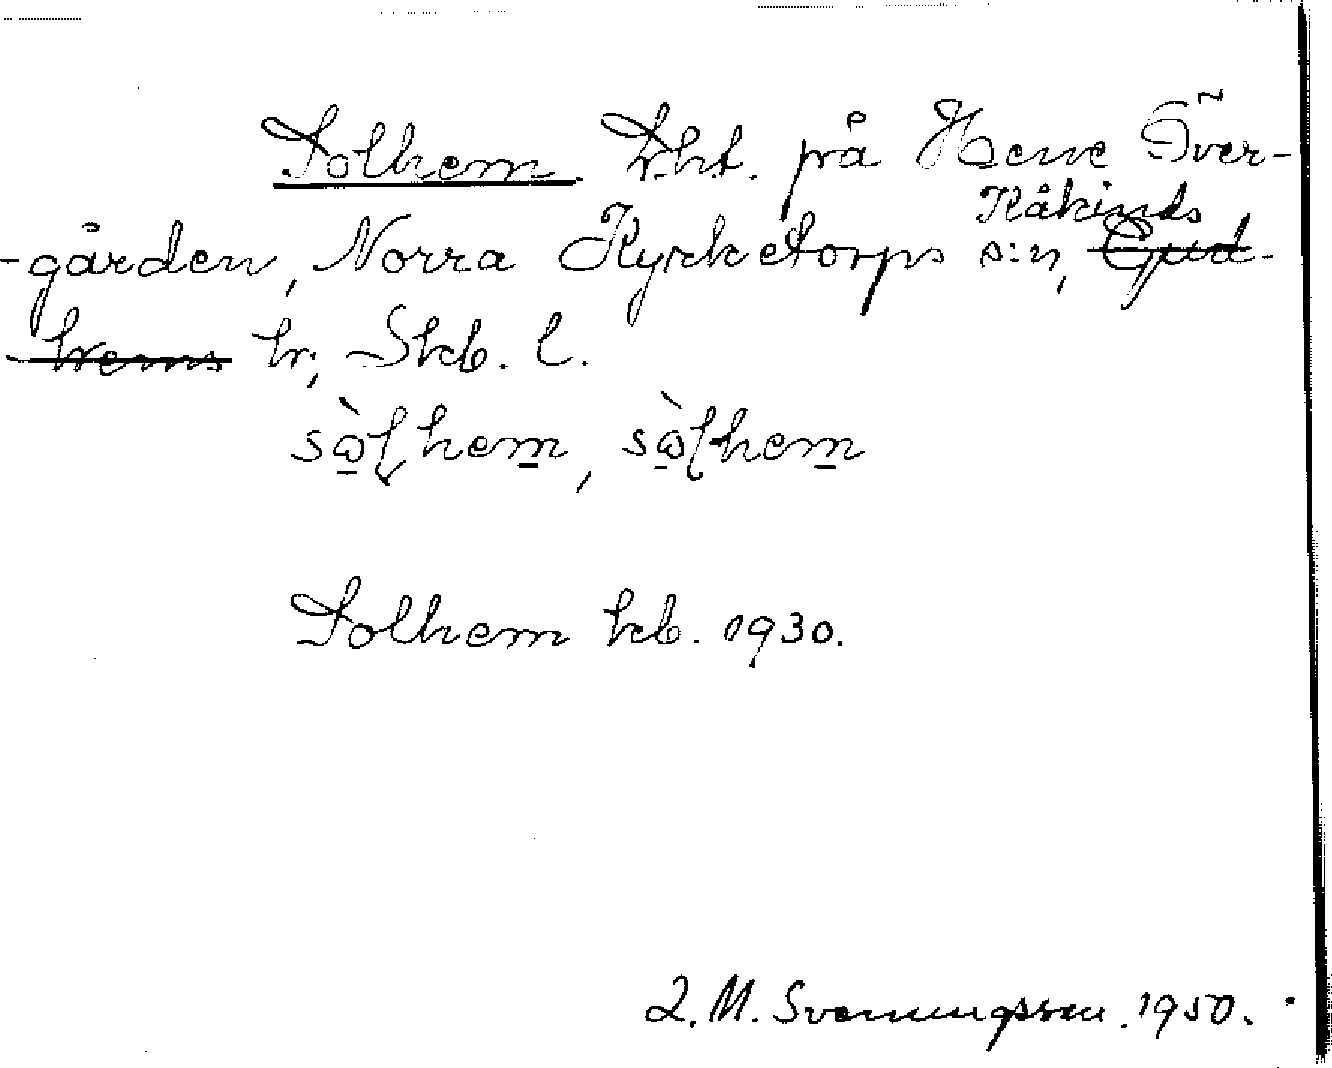 Solhem. Lht. på Hene Över-
Kåkinds
-gården, Norra Kyrketorps s:n, Gud-
hems hr, Skb. l.
Solhem kb. 1930.
L. M. Svenungsson. 1950.